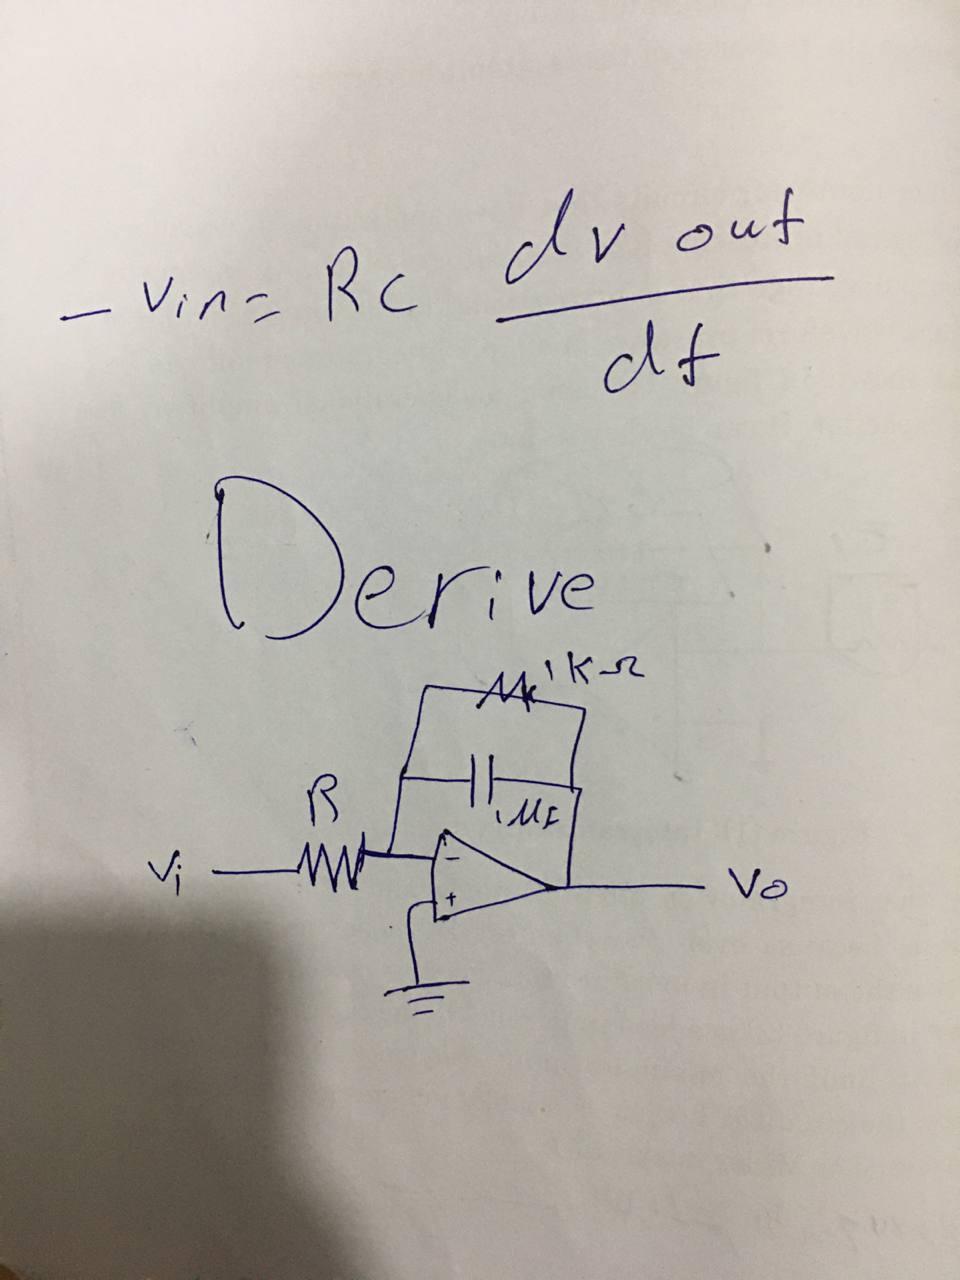 - Vin = RC dv out
dt
Derive
1KΩ
R
1Mf
Vi
-
Vo
+